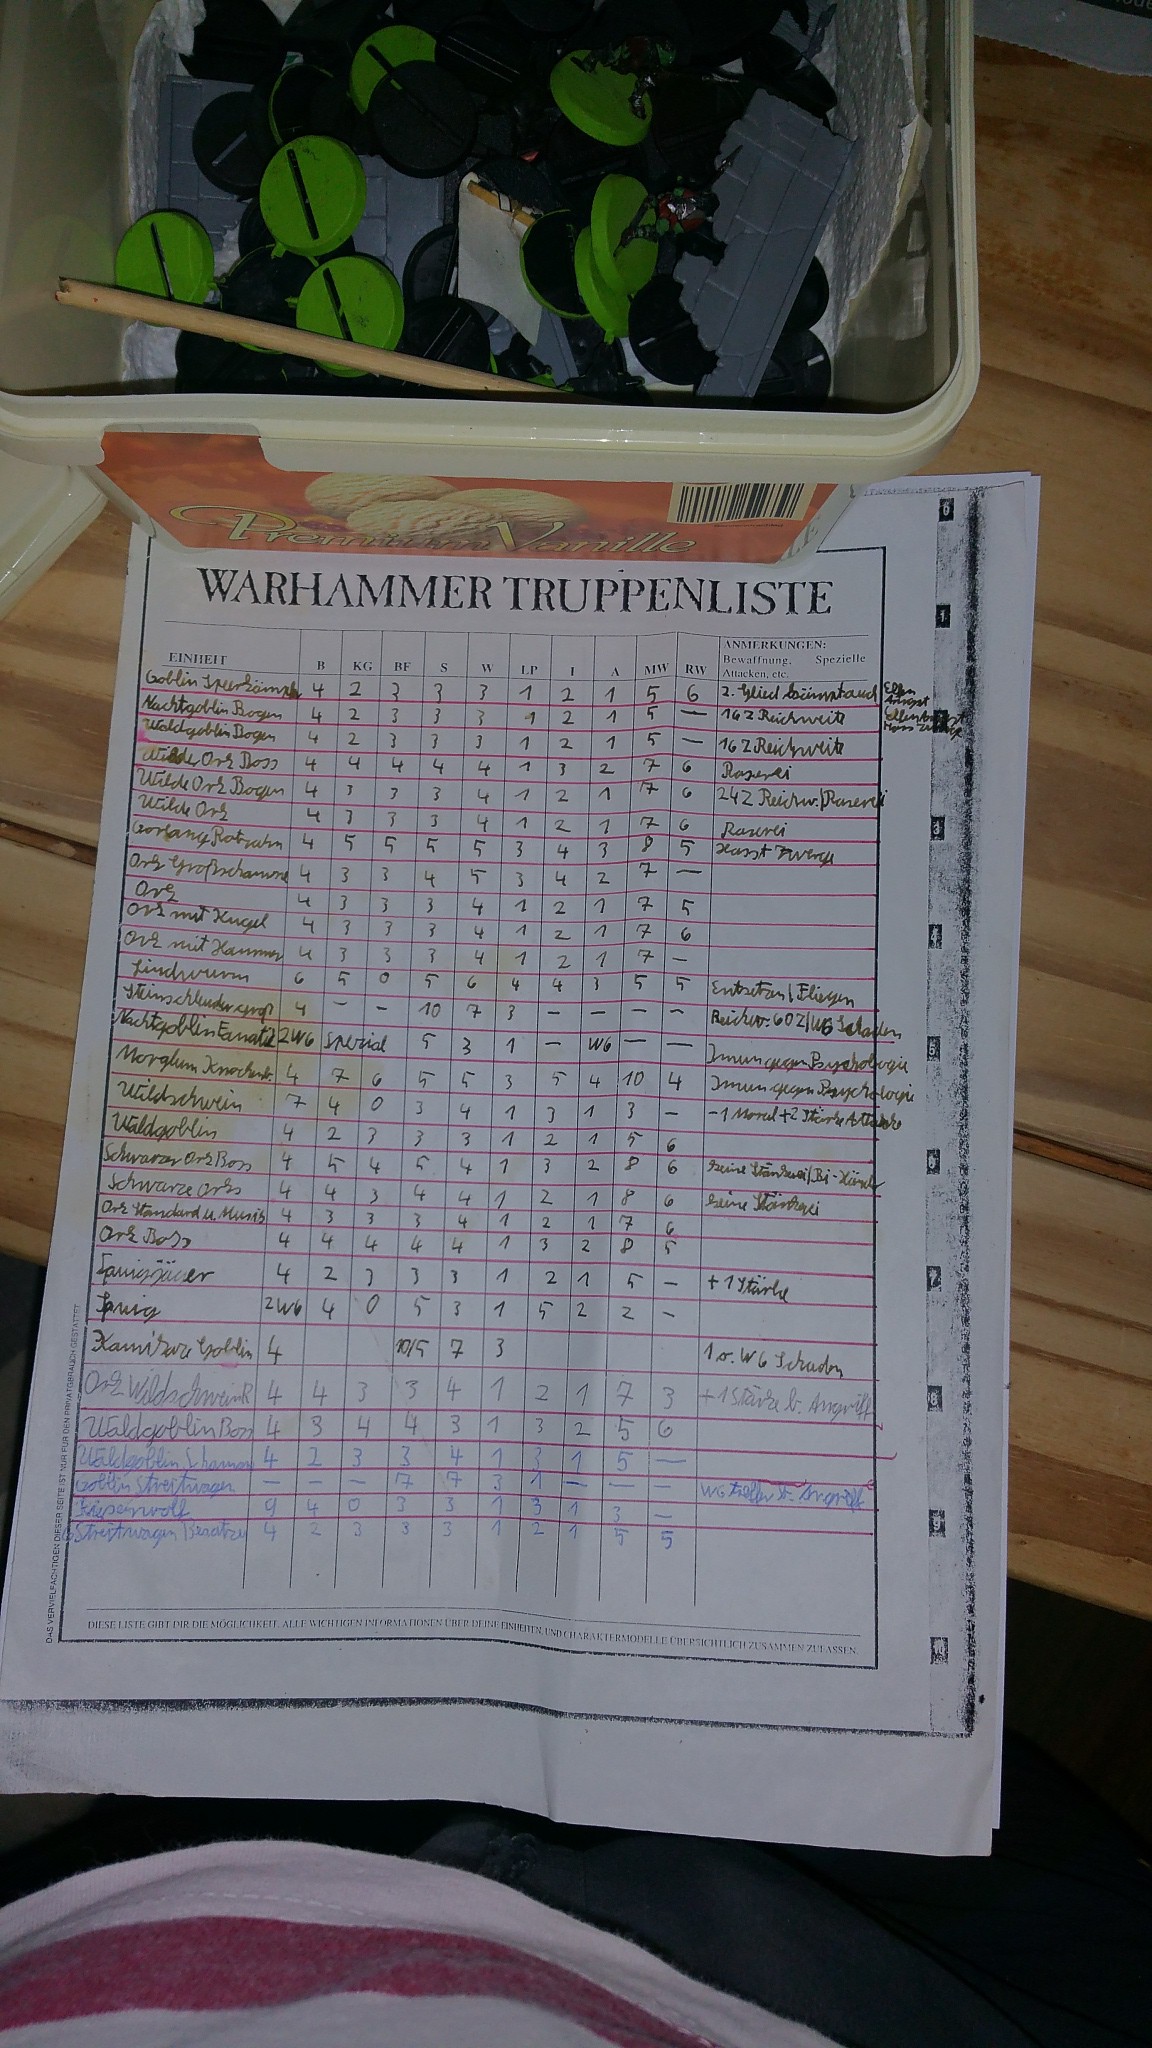 Premium Vanille
WARHAMMER TRUPPENLISTE
EINHEIT B KG BF S W LP I A MW RW ANMERKUNGEN: Bewaffnung, Spezielle Attacken, etc.
Goblin 4 2 3 3 3 1 2 1 5 6 2. Glied kämpft auch Elfen Angst
Nachtgoblin Bogen 4 2 3 3 3 1 2 1 5 — 16Z Reichweite
Waldgoblin Bogen 4 2 3 3 3 1 2 1 5 — 16Z Reichweite
Wilder Ork Boss 4 4 4 4 4 1 3 2 7 6 Raserei
Wilde Ork Bogen 4 3 3 3 4 1 2 1 7 6 24Z Reichw./Raserei
Wilde Ork 4 3 3 3 4 1 2 1 7 6 Raserei
4 5 5 5 5 3 4 3 8 5 Hasst Zwerge
Ork Großschamane 4 3 3 4 5 3 4 2 7 —
Ork 4 3 3 3 4 1 2 1 7 5
Ork mit Kugel 4 3 3 3 4 1 2 1 7 6
Ork mit Hammer 4 3 3 3 4 1 2 1 7 –
Lindwurm 6 5 0 5 6 4 4 3 5 5 Entsetzen/Fliegen
Steinschleuder groß 4 – – 10 7 3 – – – – Reichw. 60Z/W6 Schaden
Nachtgoblin Fanatik 2W6 spezial 5 3 1 – W6 — — Imun gegen Psychologie
Morglum Knochenb. 4 7 6 5 5 3 5 4 10 4 Imun gegen Psychologie
Wildschwein 7 4 0 3 4 1 3 1 3 – +2 Stärke Attacke
Waldgoblin 4 2 3 3 3 1 2 1 5 6
Schwarzer Ork Boss 4 5 4 5 4 1 3 2 8 6
Schwarze Orks 4 4 3 4 4 1 2 1 8 6
Ork Standard u. Musik 4 3 3 3 4 1 2 1 7 6
Ork Boss 4 4 4 4 4 1 3 2 8 5
Squigjäger 4 2 3 3 3 1 2 1 5 – +1 Stärke
Squig 2W6 4 0 5 3 1 5 2 2 –
Kamikaze Goblin 4 10/5 7 3 1 o. W6 Schaden
Ork WildschweinR 4 4 3 3 4 1 2 1 7 3 +1 Stärke b. Angriff
Waldgoblin Boss 4 3 4 4 3 1 3 2 5 6
Waldgoblin Schamane 4 2 3 3 4 1 3 1 5 —
Goblin Streitwagen — — — 7 7 3 1 — — — W6 Treffer Angriff
Riesenwolf 9 4 0 3 3 1 3 1 3 –
Streitwagen Besatzu 4 2 3 3 3 1 2 1 5 5
DIESE LISTE GIBT DIR DIE MÖGLICHKEIT, ALLE WICHTIGEN INFORMATIONEN ÜBER DEINE EINHEITEN, UND CHARAKTERMODELLE ÜBERSICHTLICH ZUSAMMEN ZUFASSEN.
DAS VERVIELFÄCHTIGEN DIESER SEITE IST NUR FÜR DEN PRIVATGEBRAUCH GESTATTET
0
1
3
4
5
6
7
8
9